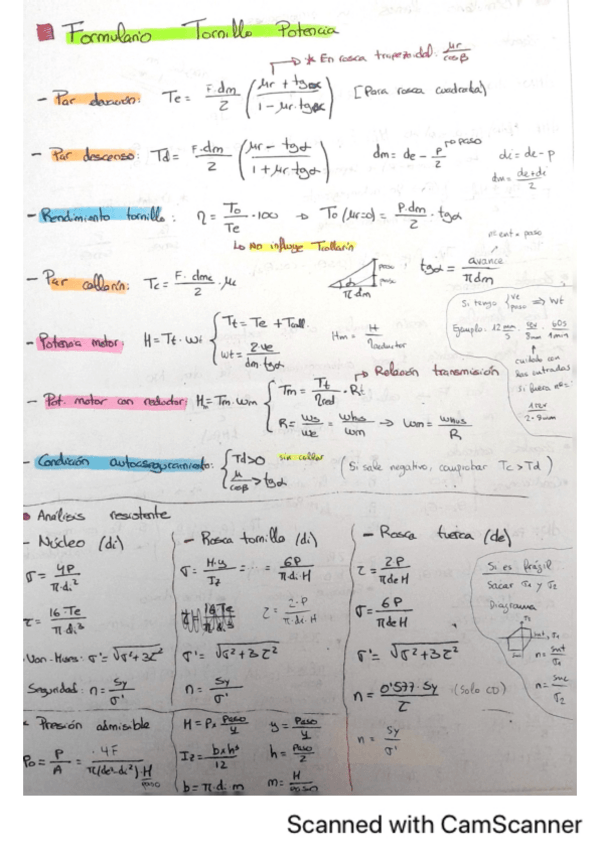 Formulario Tornillo Potencia
* En rosca trapezoidal: μr/cosβ
- Par elevación: Te = F·dm/2 (μr + tgα / 1 - μr·tgα) [Para rosca cuadrada]
- Par descenso: Td = F·dm/2 (μr - tgα / 1 + μr·tgα) dm = de - P/2 → paso di = de - p
dm = de+di/2
- Rendimiento tornillo: η = To/Te ·100 → To (μr=0) = P·dm/2 · tgα
Lo No influye Tcollarín
- Par collarín: Tc = F·dmc/2 · μc πdm tgα = avance/πdm
nº ent × paso
- Potencia motor: H = Tt·wt { Tt = Te + Tcoll
wt = 2·ve/dm·tgα
Hm = H/ηreductor
Si tengo { ve paso ⇒ wt
Ejemplo: 12 mm/s · rev/8mm · 60s/1min
cuidado con las entradas
Si fuera nº2:
1 rev/2·8mm
→ Relación transmisión
- Pot. motor con reductor: H = Tm·wm { Tm = Tt/ηred · Rt
R = ws/we = whus/wm → wm = whus/R
- Condición autoaseguramiento: { Td>0 sin collar (Si sale negativo, comprobar Tc > Td)
μ/cosβ > tgα
Análisis resistente
- Núcleo (di)
σ = 4P/π·di²
τ = 16·Te/π·di³
Von-Mises: σ' = √σ²+3τ²
Seguridad: n = Sy/σ'
- Rosca tornillo (di)
σ = M·y/Iz = ... = 6P/π·di·H
τ = 2·P/π·di·H
σ' = √σ²+3τ²
n = Sy/σ'
- Rosca tuerca (de)
τ = 2P/πdeH
σ = 6P/πdeH
σ' = √σ²+3τ²
n = 0'577·Sy/τ (Solo CD)
n = Sy/σ'
Si es frágil
Sacar σ1 y σ2
Diagrama
n = Smt/σ1
n = Smc/σ2
- Presión admisible
Po = P/A = 4F/π(de²-di²)·H/paso
b = π·d·m
h = Paso/2
Scanned with CamScanner